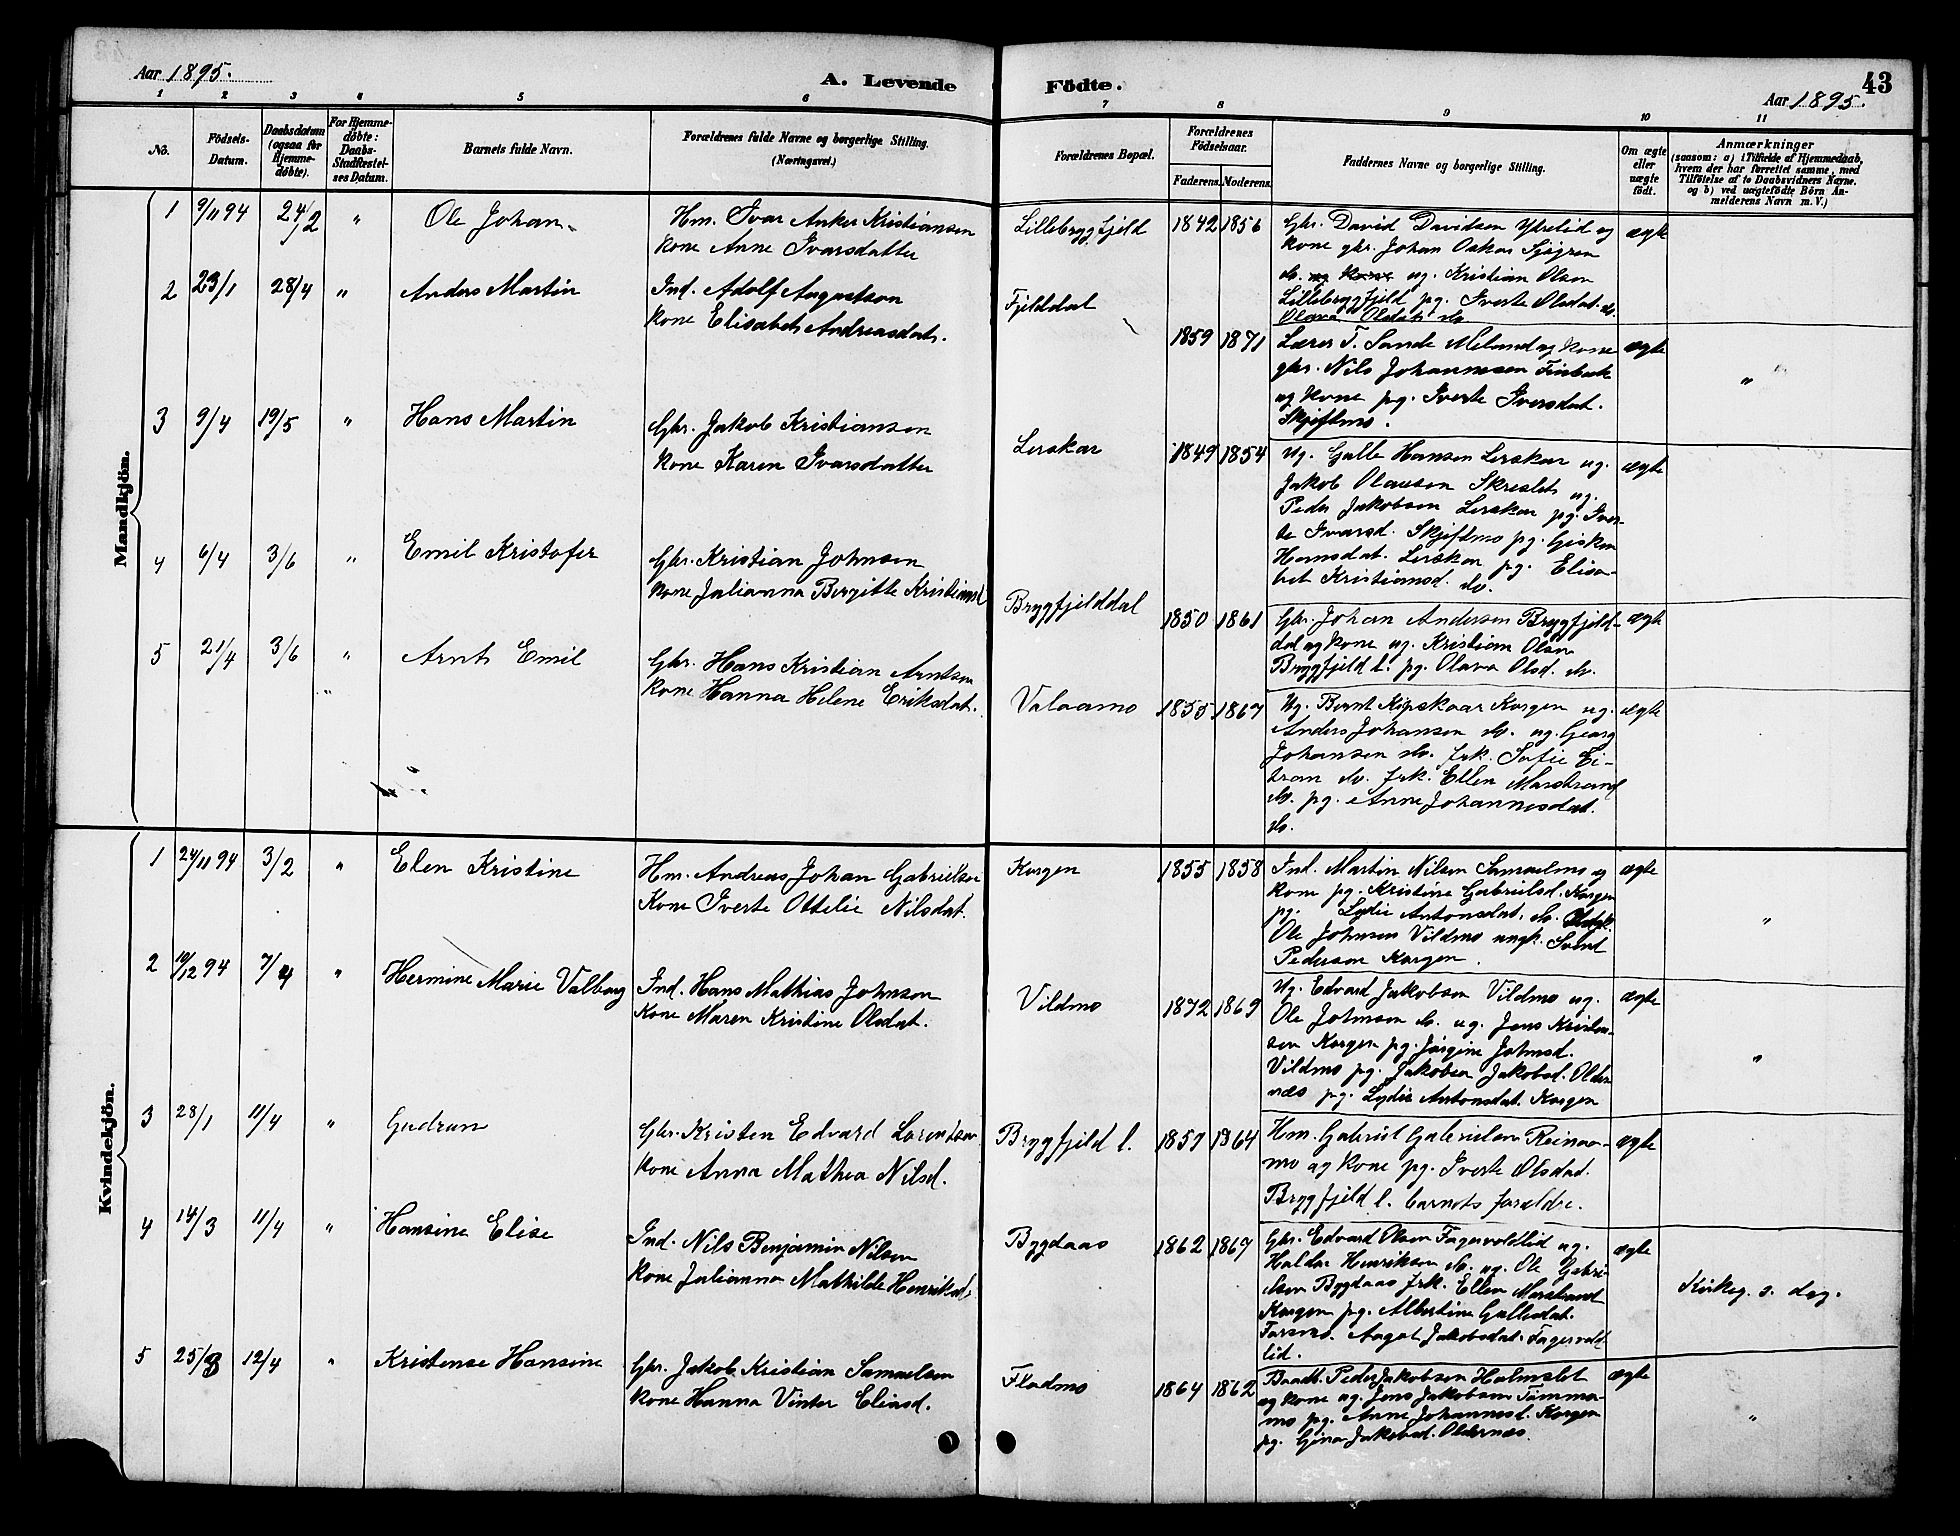 Aar 1895.
A. Levende Födte.
43
Aar 1895.
1 2 3 4 5 6 7 8 9 10 11
No.
Födsels-Datum.
Daabsdatum (ogsaa for Hjemme-döbte).
For Hjemme-döbte: Daabs-Stadfæstel-ses Datum.
Barnets fulde Navn.
Forældrenes fulde Navne og borgerlige Stilling. (Næringsvei.)
Forældrenes Bopæl.
Forældrenes Födselsaar.
Faderens. Moderens.
Faddernes Navne og borgerlige Stilling.
Om ægte eller uægte födt.
Anmærkninger
(saasom: a) i Tilfælde af Hjemmedaab,
hvem der har forrettet samme, med
Tilföielse af to Daabsvidners Navne,
og b) ved uægtefödte Börn An-
melderens Navn m. V.)
Mandkjön.
1 9/11 94 24/2 " Ole Johan.
Hm. Ivar Anker Kristiansen
kone Anne Ivarsdatter
Lillebryggfjeld 1842 1856
Gbr. David Davidsen Ytrelid og
kone gbr. Johan Oskar Sjøgren
do. og kone ug. Kristian Olsen
Lillebryggfjeld pg. Iverte Olsdat. do.
Olava Olsdat. do
ægte
2 23/1 28/4 " Anders Martin
Ind. Adolf Augustson
kone Elisabeth Andreasdat.
Fjelddal 1859 1871
Lærer T. Sande Meland og kone
gbr. Nils Johannesen Finbak
og kone pg. Iverte Iversdat.
Skjeftmo.
ægte "
3 9/4 19/5 " Hans Martin
Gbr. Jakob Kristiansen
kone Karen Ivarsdatter
Lerskar 1849 1854
Ug. Galle Hansen Lerskar ug.
Jakob Olausen Skreslet ug.
Peder Jakobsen Lerskar pg. Iver-
te Ivarsd. Skjeftmo pg. Gisken
Hansdat. Lerskar pg. Elisa-
bet Kristiansd. do.
ægte
4 6/4 3/6 " Emil Kristofer
Gbr. Kristian Johnsen
kone Julianna Bergitte Kristiansd
Bryggfjelddal 1850 1861
Gbr. Johan Andersen Bryggfjeld-
dal og kone ug. Kristian Olsen
Bryggfjeld l. pg. Olava Olsd. do.
ægte
5 21/4 3/6 " Arnt Emil
Gbr. Hans Kristian Arntsen
kone Hanna Helene Eriksdat.
Valaamo 1855 1867
Ug. Bernt Kipskaar Korgen ug.
Anders Johansen do. ug. Georg
Johansen do. frk. Sofie Ei-
tran do. frk. Ellen Marstrand
do. pg. Anne Johannesdat.
do.
ægte
Kvindekjön.
1 24/11 94 3/2 " Elen Kristine
Hm. Andreas Johan Gabrielsen
Kone Iverte Ottelie Nilsdat.
Korgen 1855 1858
Ind. Martin Nilsen Samuelmo og
kone pg. Kristine Gabrielsd. Korgen
pg. Lydie Antonsdat. do.
Ole Johnsen Vildmo ungk. Svend
Pedersen Korgen.
ægte "
2 19/12 94 7/4 " Hermine Marie Valborg
Ind. Hans Mathias Johnson
Kone Maren Kristine Olsdat.
Vildmo 1872 1869
Ug. Edvard Jakobsen Vildmo ug.
Ole Johnsen do. ug. Jens Kristen-
sen Korgen pg. Jørgine Johnsd.
Vildmo pg. Jakobea Jakobsd. Older-
næs pg. Lydie Antonsdat. Korgen
ægte "
3 28/1 11/4 " Gudrun
Gbr. Kristen Edvard Lorentsen
kone Anna Mathea Nilsd.
Bryggfjeld l. 1857 1864
Hm. Gabriel Gabrielsen Reinaa-
mo og kone pg. Iverte Olsdat.
Bryggfjeld l. barnets foreldre.
ægte
4 14/3 11/4 " Hansine Elise
Ind. Nils Benjamin Nilsen
kone Julianna Mathilde Henriksd.
Bygdaas 1862 1867
Gbr. Edvard Olsen Fagervoldlid ug.
Haldor Henriksen do. ug. Ole Gabri-
elsen Bygdaas frk. Ellen Marstrand
Korgen pg. Albertine Gallesdat.
Aagot Jakobsdat. Fagervold
lid.
ægte
Kirkeg. s. dag.
5 25/3 12/4 " Kristense Hansine
Gbr. Jakob Kristian Samuelsen
kone Hanna Vinter Eliasd.
Fladmo 1864 1862
Baadb. Peder Jakobsen Holmslet
og kone ug. Jens Jakobsen Tømmer-
mo pg. Anne Johannesd. Korgen
pg. Gina Jakobsd. Oldernæs.
ægte "